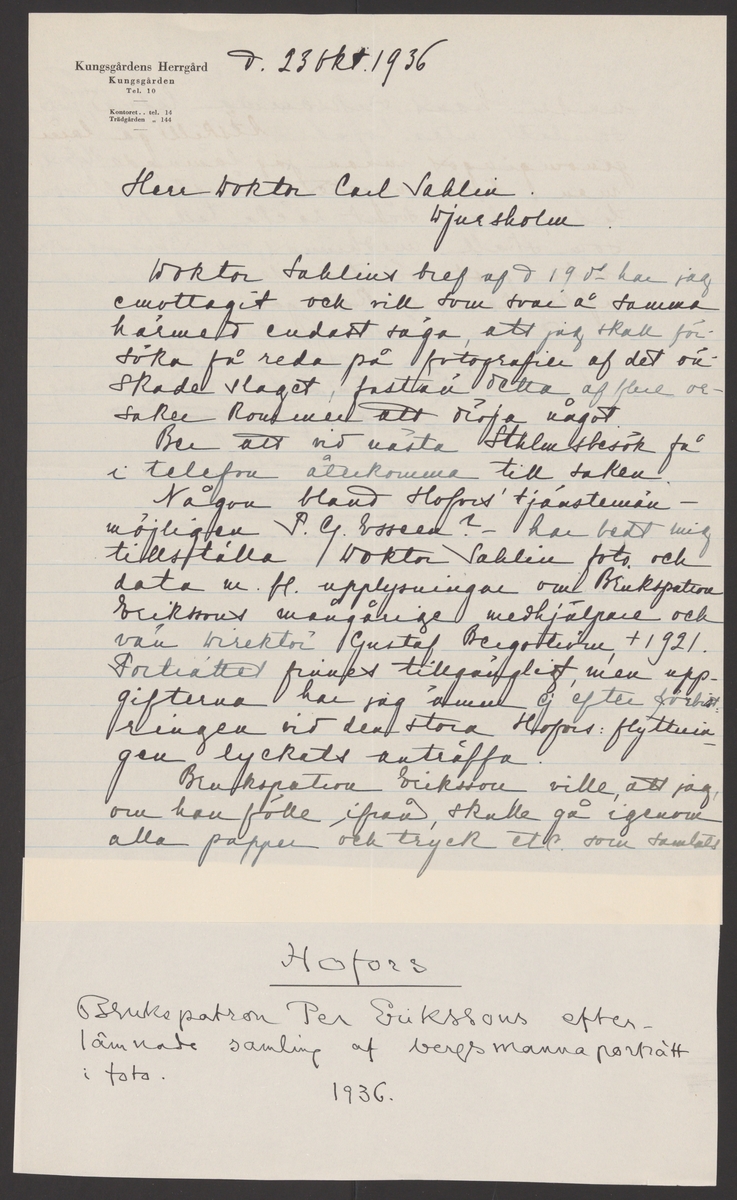 Kungsgårdens Herrgård
Kungsgården
Tel. 10
Kontoret.. tel. 14
Trädgården „ 144
d. 23 Okt. 1936
Herr Doktor Carl Sahlin.
Djursholm.
Doktor Sahlins bref af d 19 ds har jag
emottagit och vill som svar å samma
härmed endast säga, att jag skall för-
söka få reda på fotografier af det ön-
skade slaget, fastän detta af flere or-
saker kommer att dröja något
Ber att vid nästa Sthlmsbesök få
i telefon återkomma till saken.
Någon bland Hofors' tjänstemän –
möjligen P. G. Esseen? – har bedt mig
tillställa Doktor Sahlin foto och
data m. fl. upplysningar om Brukspatron
Erikssons mångårige medhjälpare och
vän Direktör Gustaf Bergström, † 1921.
Porträttet finnes tillgängligt, men upp-
gifterna har jag ännu ej efter
ringen vid den stora Hofors: flyttnin-
gen lyckats anträffa.
Brukspatron Eriksson ville, att jag,
om han fölle ifrån, skulle gå igenom
alla papper och tryck etc. som samlats
Hofors
Brukspatron Per Erikssons efter-
lämnade samling af bergsmannaporträtt
i foto.
1936.